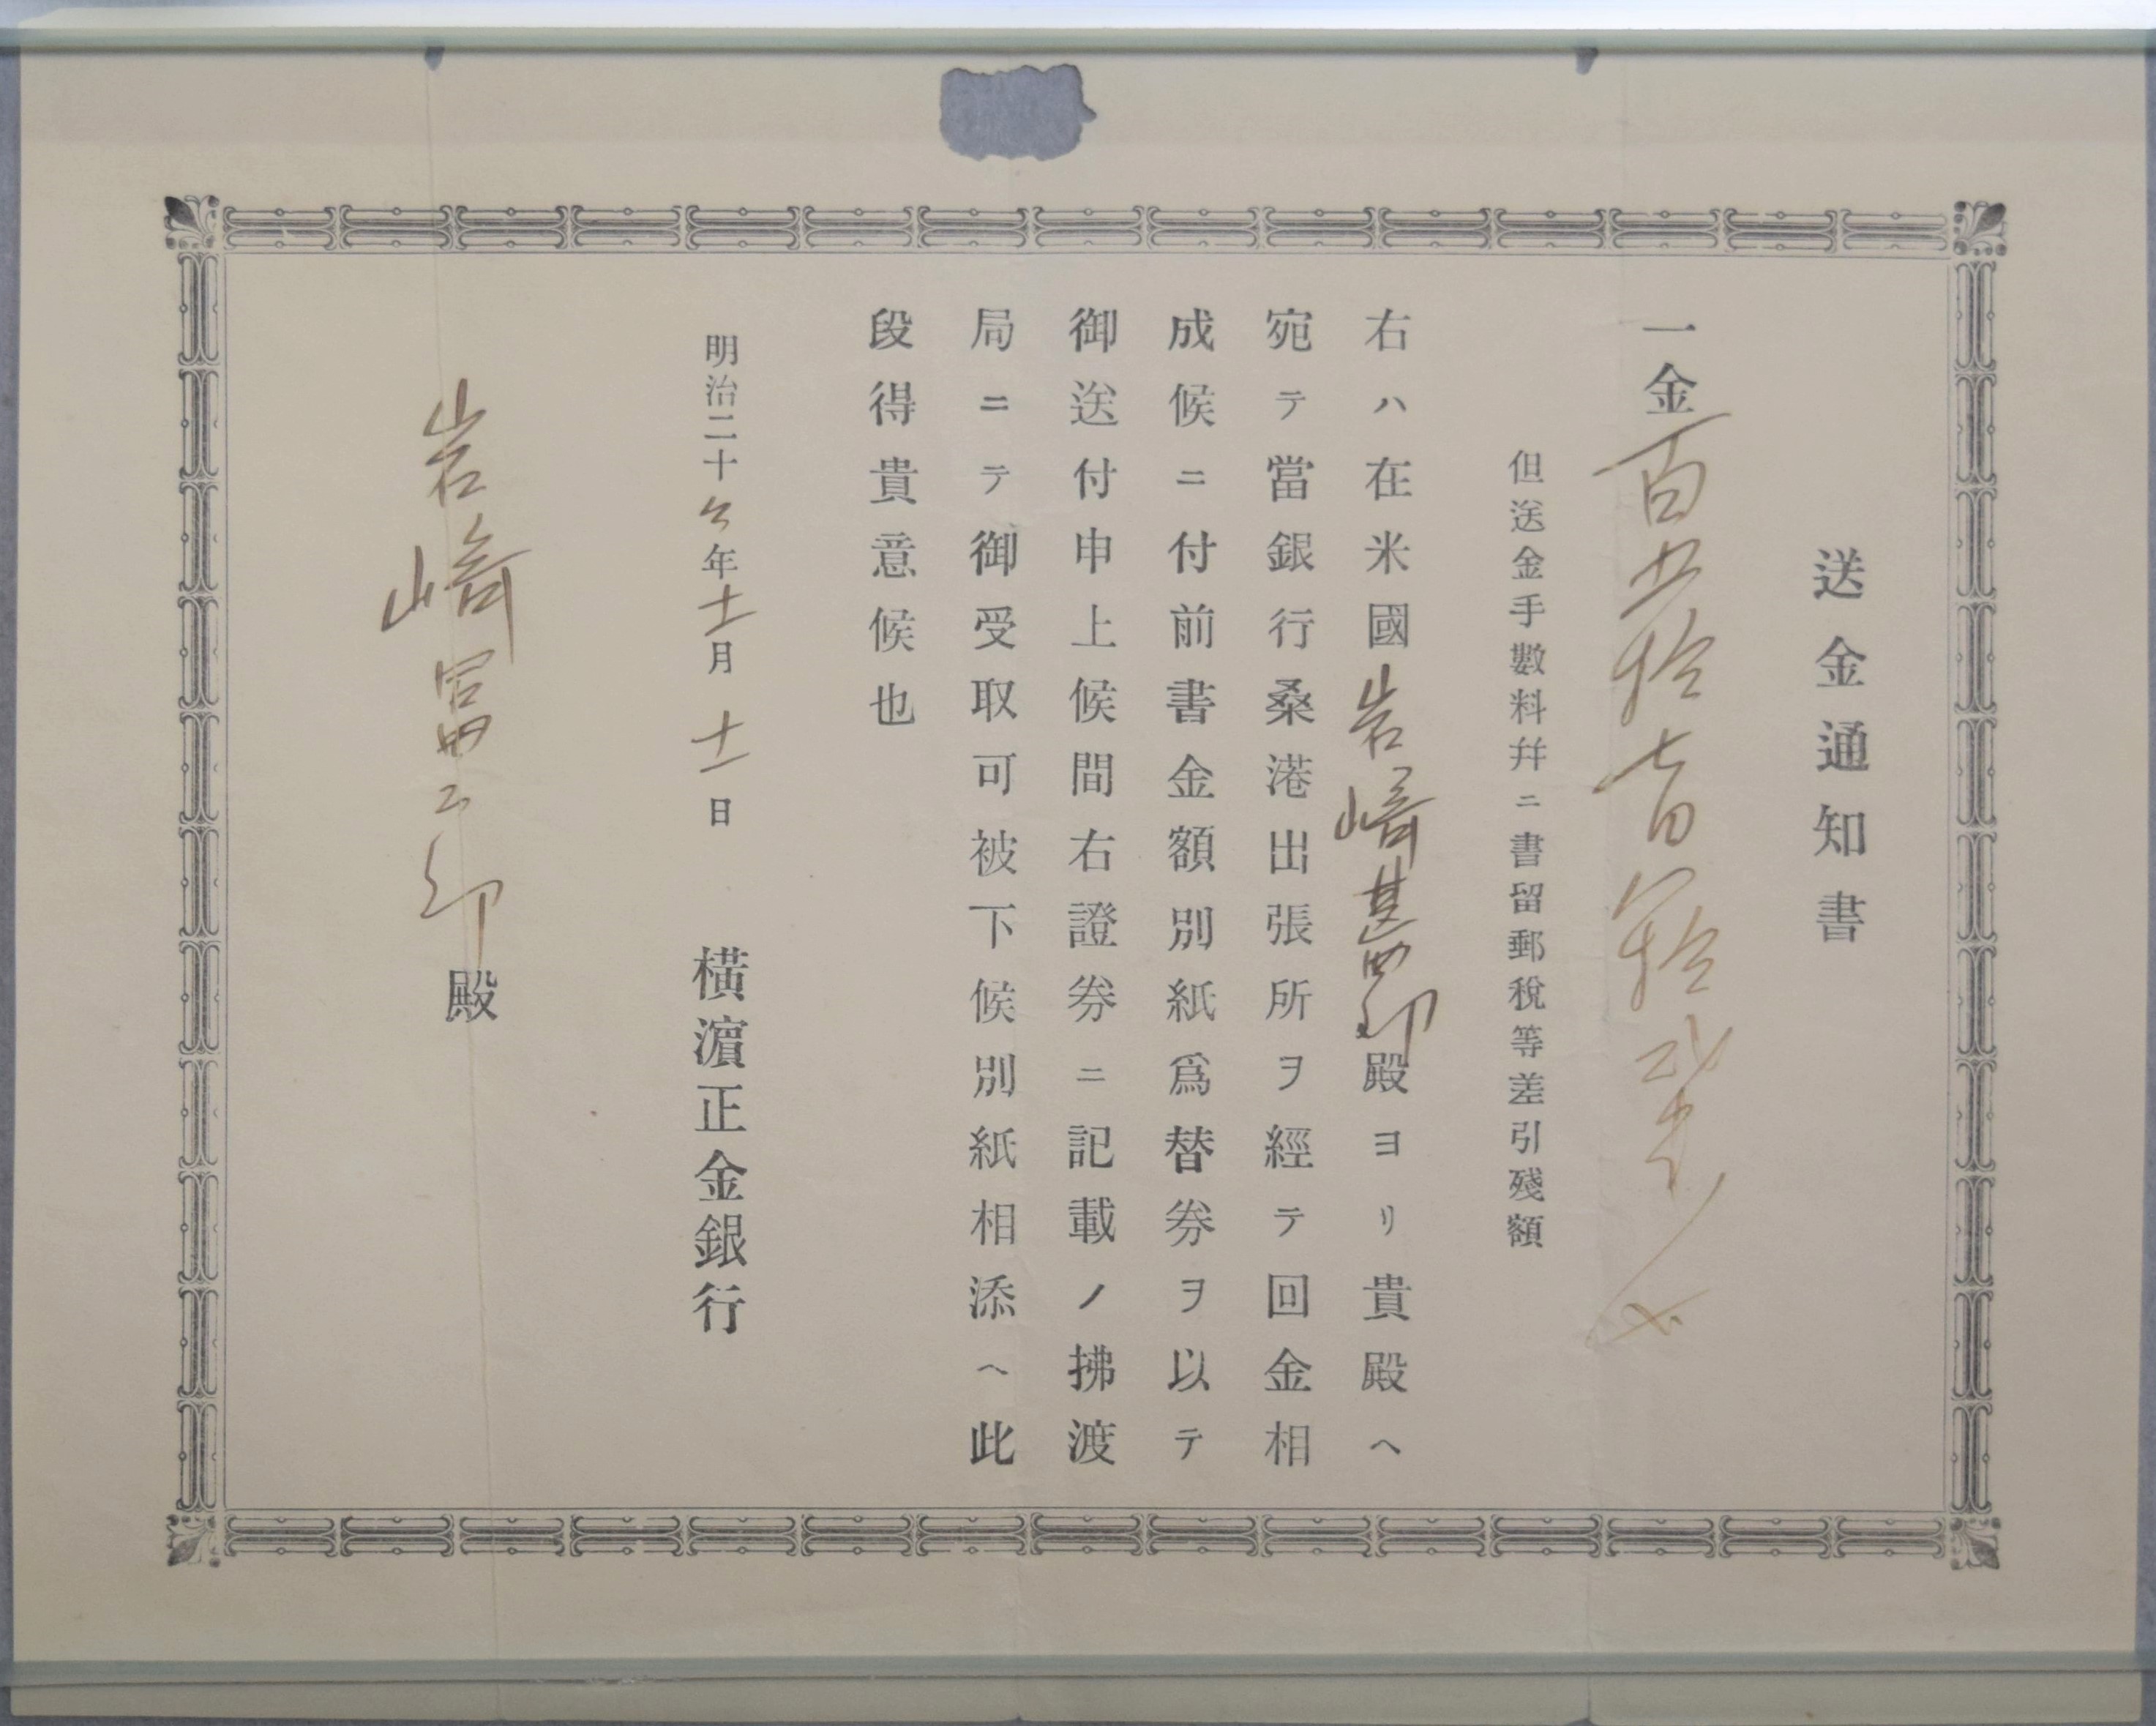 送金通知書
一金百五拾七円 拾弐銭也
但送金手數料幷ニ書留郵税等差引殘額
右ハ在米國岩﨑甚四郎殿ヨリ貴殿ヘ
宛テ當銀行桑港出張所ヲ經テ回金相
成候ニ付前書金額別紙爲替券ヲ以テ
御送付申上候間右證券ニ記載ノ拂渡
局ニテ御受取可被下候別紙相添ヘ此
段得貴意候也
明治二十 年十一月十一日 橫濵正金銀行
岩﨑冨二郎殿